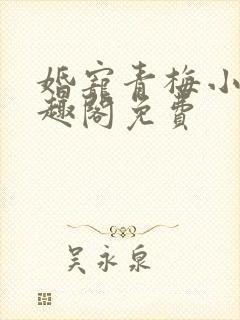 婚宠青梅小
趣阁免费
吴永泉